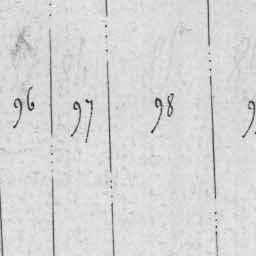 96 97 98